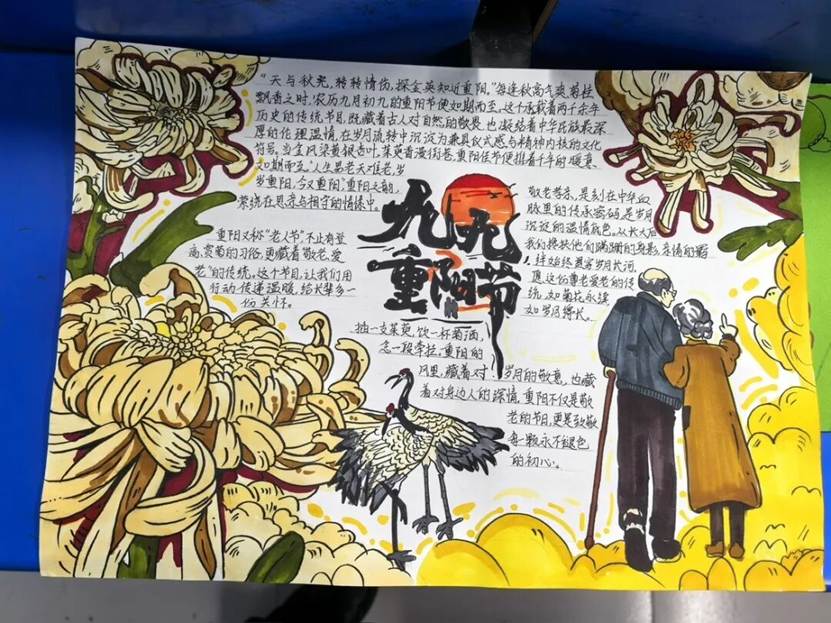 "天与秋光，转转情伤，探金英知近重阳。"每逢秋高气爽菊桂
飘香之时，农历九月初九的重阳节便如期而至，这个承载着两千余年
历史的传统节日，既藏着古人对自然的敬畏，也凝结着中华民族最深
厚的伦理温情，在岁月流转中沉淀为兼具仪式感与精神内核的文化
符号。当金风染黄银杏叶，茱萸香漫街巷，重阳佳节便携着千年的暖意，
如期而至。"人生易老天难老，岁
岁重阳，今又重阳。"重阳之韵，
萦绕在思亲与相守的情愫中。
重阳又称"老人节"，不止有登
高、赏菊的习俗，更藏着敬老、爱
老"的传统。这个节日，让我们用
行动传递温暖，给长辈多一
份关怀。
九九
重阳节
敬老孝亲，是刻在中华血
脉里的传承密码，是岁月
沉淀的温情底色。从长大后
我们搀扶他们蹒跚的身影，亲情的羁
绊始终贯穿岁月长河。
愿这份尊老爱老的传
统，如菊花永续
如岁月绵长。
插一支茱萸，饮一杯菊酒，
念一段牵挂，重阳的
风里，藏着对岁月的敬意，也藏
着对身边人的深情。重阳不仅是敬
老的节日，更是致敬
每一颗永不褪色
的初心。